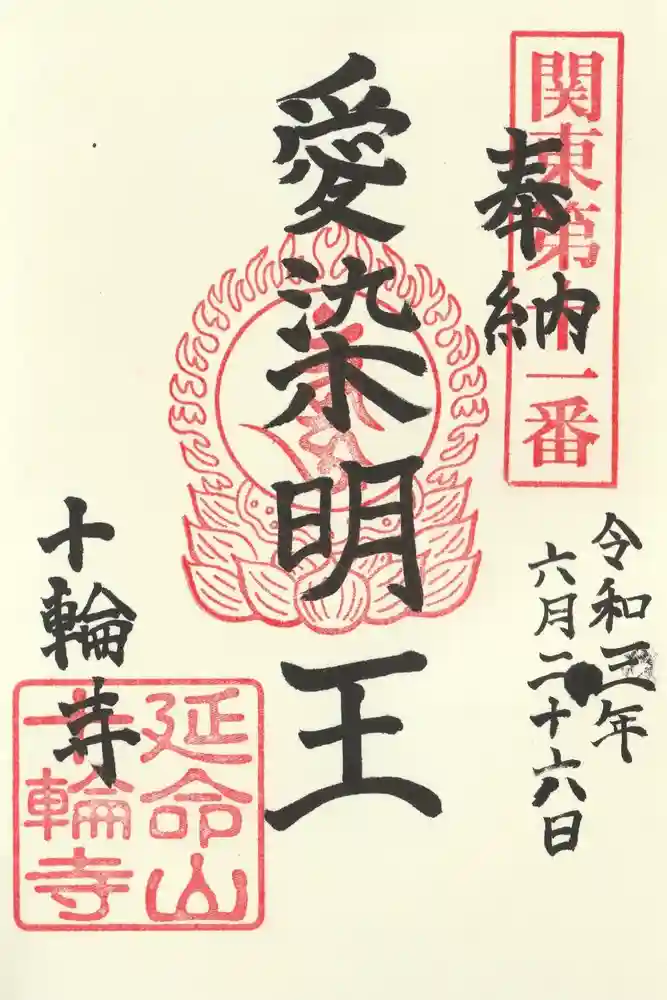 関東第十一番
奉納
令和三年
六月二十六日
愛染明王
十輪寺
延命山
十輪寺